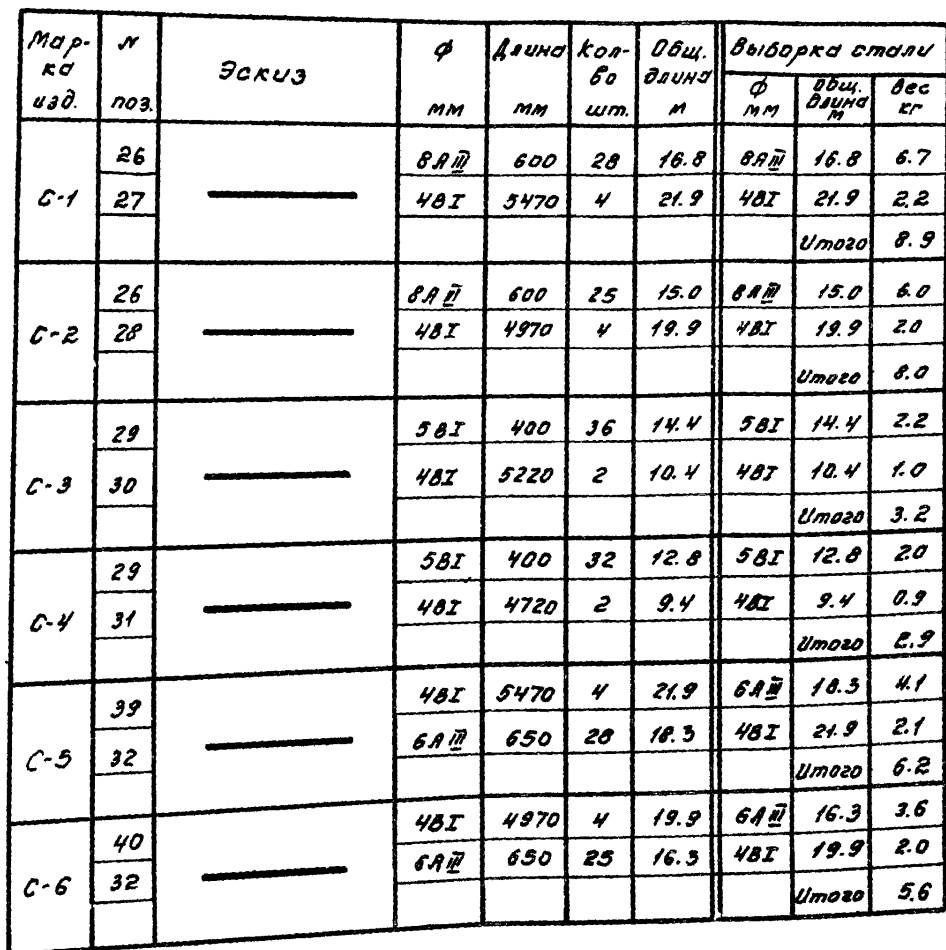 Мар-ка изд. N поз. Эскиз ф мм Длина мм Кол-во шт. Общ. длина м Выборка стали
ф мм Общ. Длина м Вес кг
26 8АIII 600 28 16.8 8АIII 16.8 6.7
С-1 27 4ВI 5470 4 21.9 4ВI 21.9 2.2
Итого 8.9
26 8АII 600 25 15.0 8АIII 15.0 6.0
С-2 28 4ВI 4970 4 19.9 4ВI 19.9 2.0
Итого 8.0
29 5ВI 400 36 14.4 5ВI 14.4 2.2
С-3 30 4ВI 5220 2 10.4 4ВI 10.4 1.0
Итого 3.2
29 5ВI 400 32 12.8 5ВI 12.8 2.0
С-4 31 4ВI 4720 2 9.4 4ВI 9.4 0.9
Итого 2.9
39 4ВI 5470 4 21.9 6АIII 18.3 4.1
С-5 32 6АIII 650 28 18.3 4ВI 21.9 2.1
Итого 6.2
40 4ВI 4970 4 19.9 6АIII 16.3 3.6
С-6 32 6АIII 650 25 16.3 4ВI 19.9 2.0
Итого 5.6